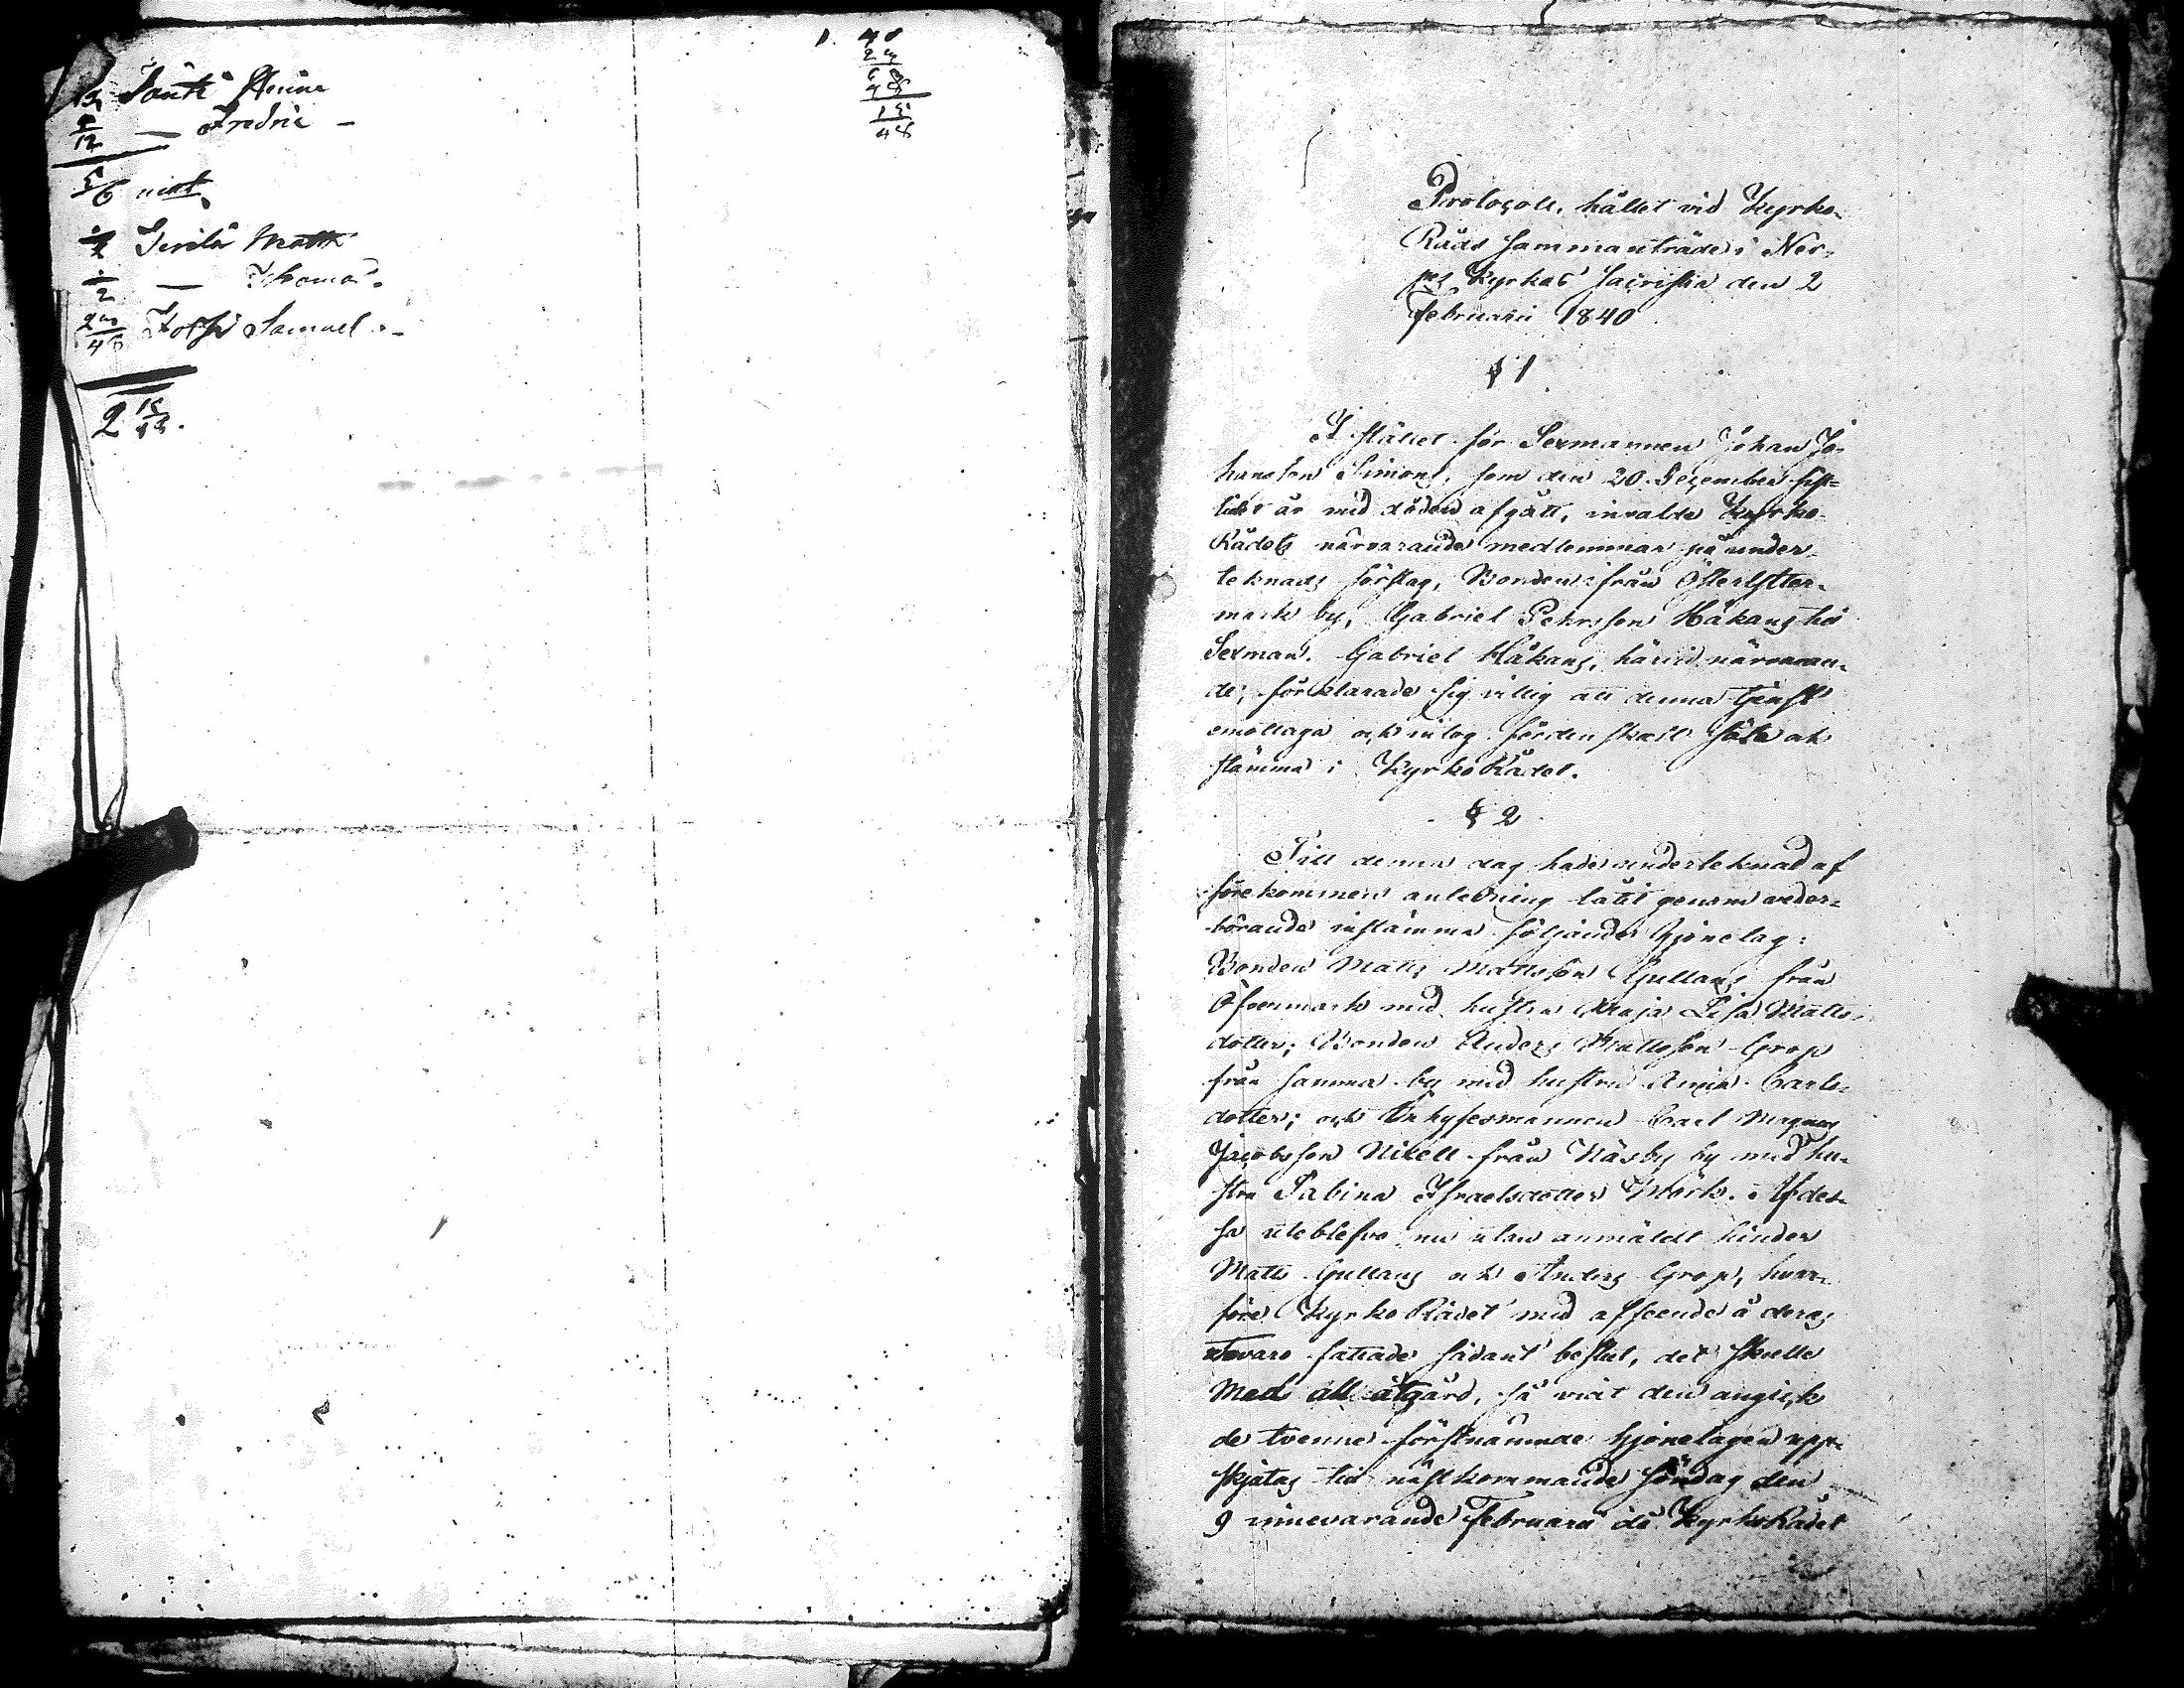 — Fredric —
5/6
— Thomas
Samuel —
2 15/48.
48
15
48
Protocoll, hållet vid Kyrko-
Råds sammanträde i Ner-
pes Kyrkas Sacristia den 2
Februarii 1840
§ 1
I stället för Sexmannen Johan Jo-
hansson Simons, som den 20 December sist-
lidet år med döden afgått, invalde Kyrko-
Rådets närvarande medlemmar på under-
teknads förslag, Bonden ifrån Österlytter-
mark by, Gabriel Pehrsson Håkans till
Sexman. Gabriel Håkans, härvid närvaran-
de, förklarade sig villig att denna tjenst
emottaga och intog förden skull säte och
stämma i KyrkoRådet.
§ 2
Till denna dag hade underteknad af
förekommen anledning låtit genom veder-
börande instämma följande Hjonelag:
Bonden Matts Mattsson Gullans från
Öfvermark med hustru Maja Lisa Matts-
dotter; Bonden Anders Mattsson Grop
från samma by med hustru Anna Carls-
dotter; och Inhysesmannen Carl Magnus
Jacobsson Nixell från Näsby by med hu-
stru Sabina Israelsdotter Mörk. Af des-
sa uteblefvo nu utan anmäldt hinder
Matts Gullans och Anders Grop, hvar-
före KyrkoRådet med afseende å deras
utevaro fattade sådant beslut, det skulle
Med all åtgärd, så vidt den angick
de tvenne förstnämnde hjonelagen upp-
skjutas till nästkommande Söndag den
9 innevarande Februarii då KyrkoRådet